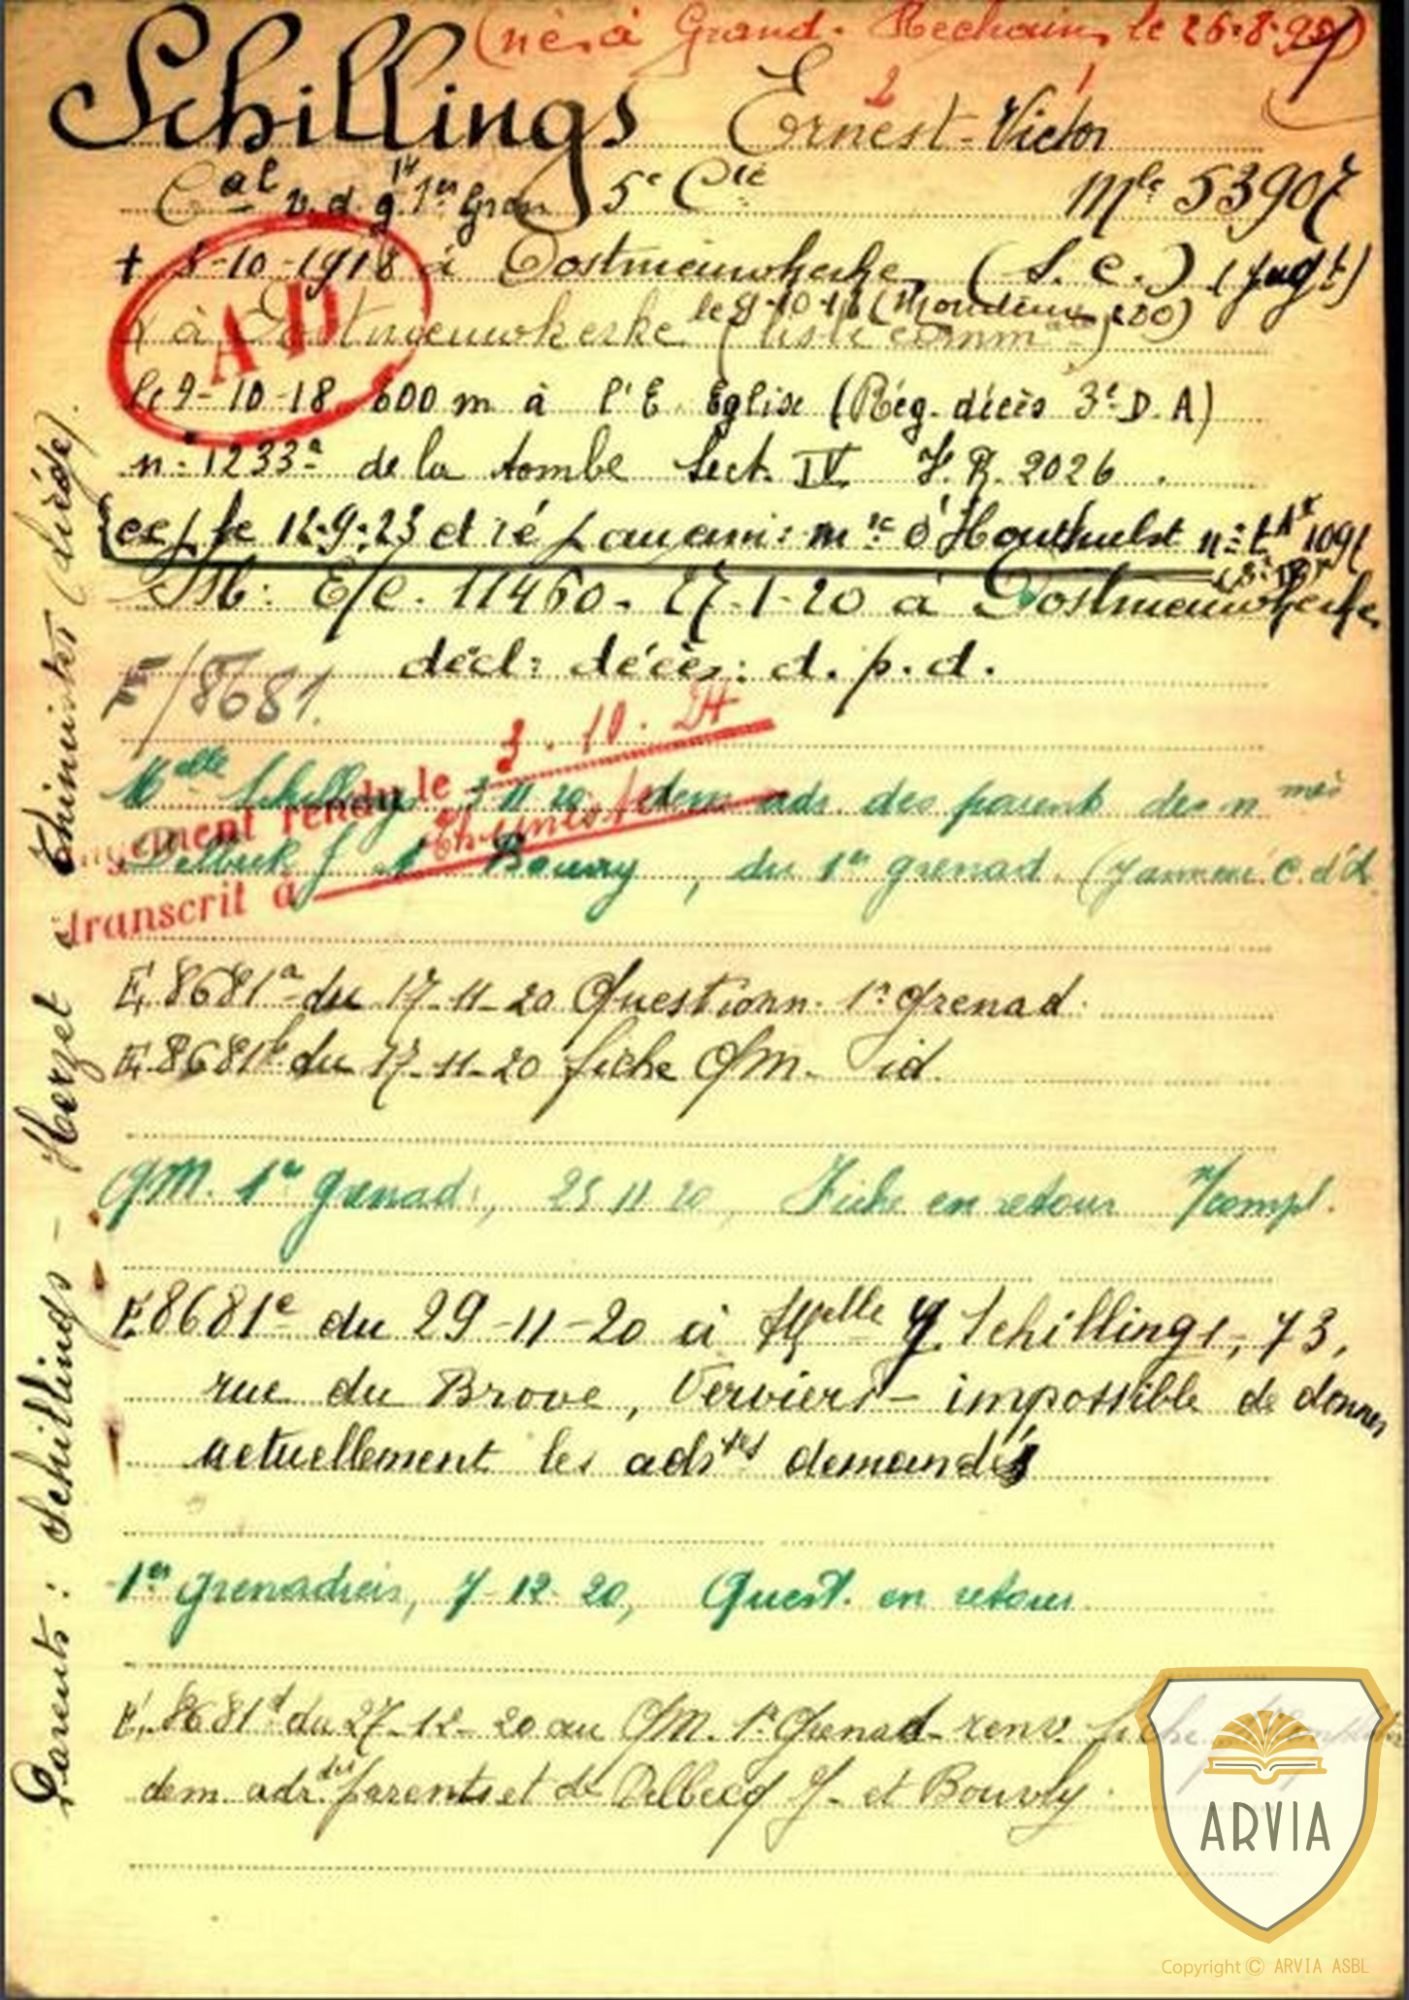 (né à Grand-Rechain, le 26-8-95)
Schillings Ernest-Victor
2 1
Cal v.d.g. 14 1er Gren 5e Cie Mle 53907
† 5-10-1918 à Oostnieuwkerke (S.C.) (jugt)
le 9-10-18
à Oostnieuwkerke (liste comm
AD
le 9-10-18 600 m à l'E. Eglise (Rég. décès 3e D.A)
n° 1233a de la tombe Sect. IV S.R. 2026.
ex/ le 12-9-23 et ré : mre d'Houthulst n° 1091
E/C. 11460-27-1-20 à Oostnieuwkerke
décl: décès: d.p.d.
E/8681.
3.10.24
Melle Schillings 3 11 20, dem adr. des parents des n més
rendu le
Delbeck J & Bouvy, du 1er grenad.
transcrit à
E. 8681a du 17-11-20 Questionn. 1r Grenad.
E. 8681b du 17-11-20 fiche QM- id.
QM. 1er grenad, 25.11.20, Fiche en retour n/compl.
E. 8681c du 29-11-20 à Melle Y Schillings, 73,
rue du Brove, Verviers - impossible de donner
actuellement les adrses demandés
1er grenadiers, 7-12-20, Quest. en retour
E. 8681d du 27-12-20 au QM. 1r Grenad- renv. fiche
dem. adr. des parents et de Delbecq J- et Bouvy.
Parents : Schillings - Herzet à Thimister (Liège).
ARVIA
Copyright © ARVIA ASBL